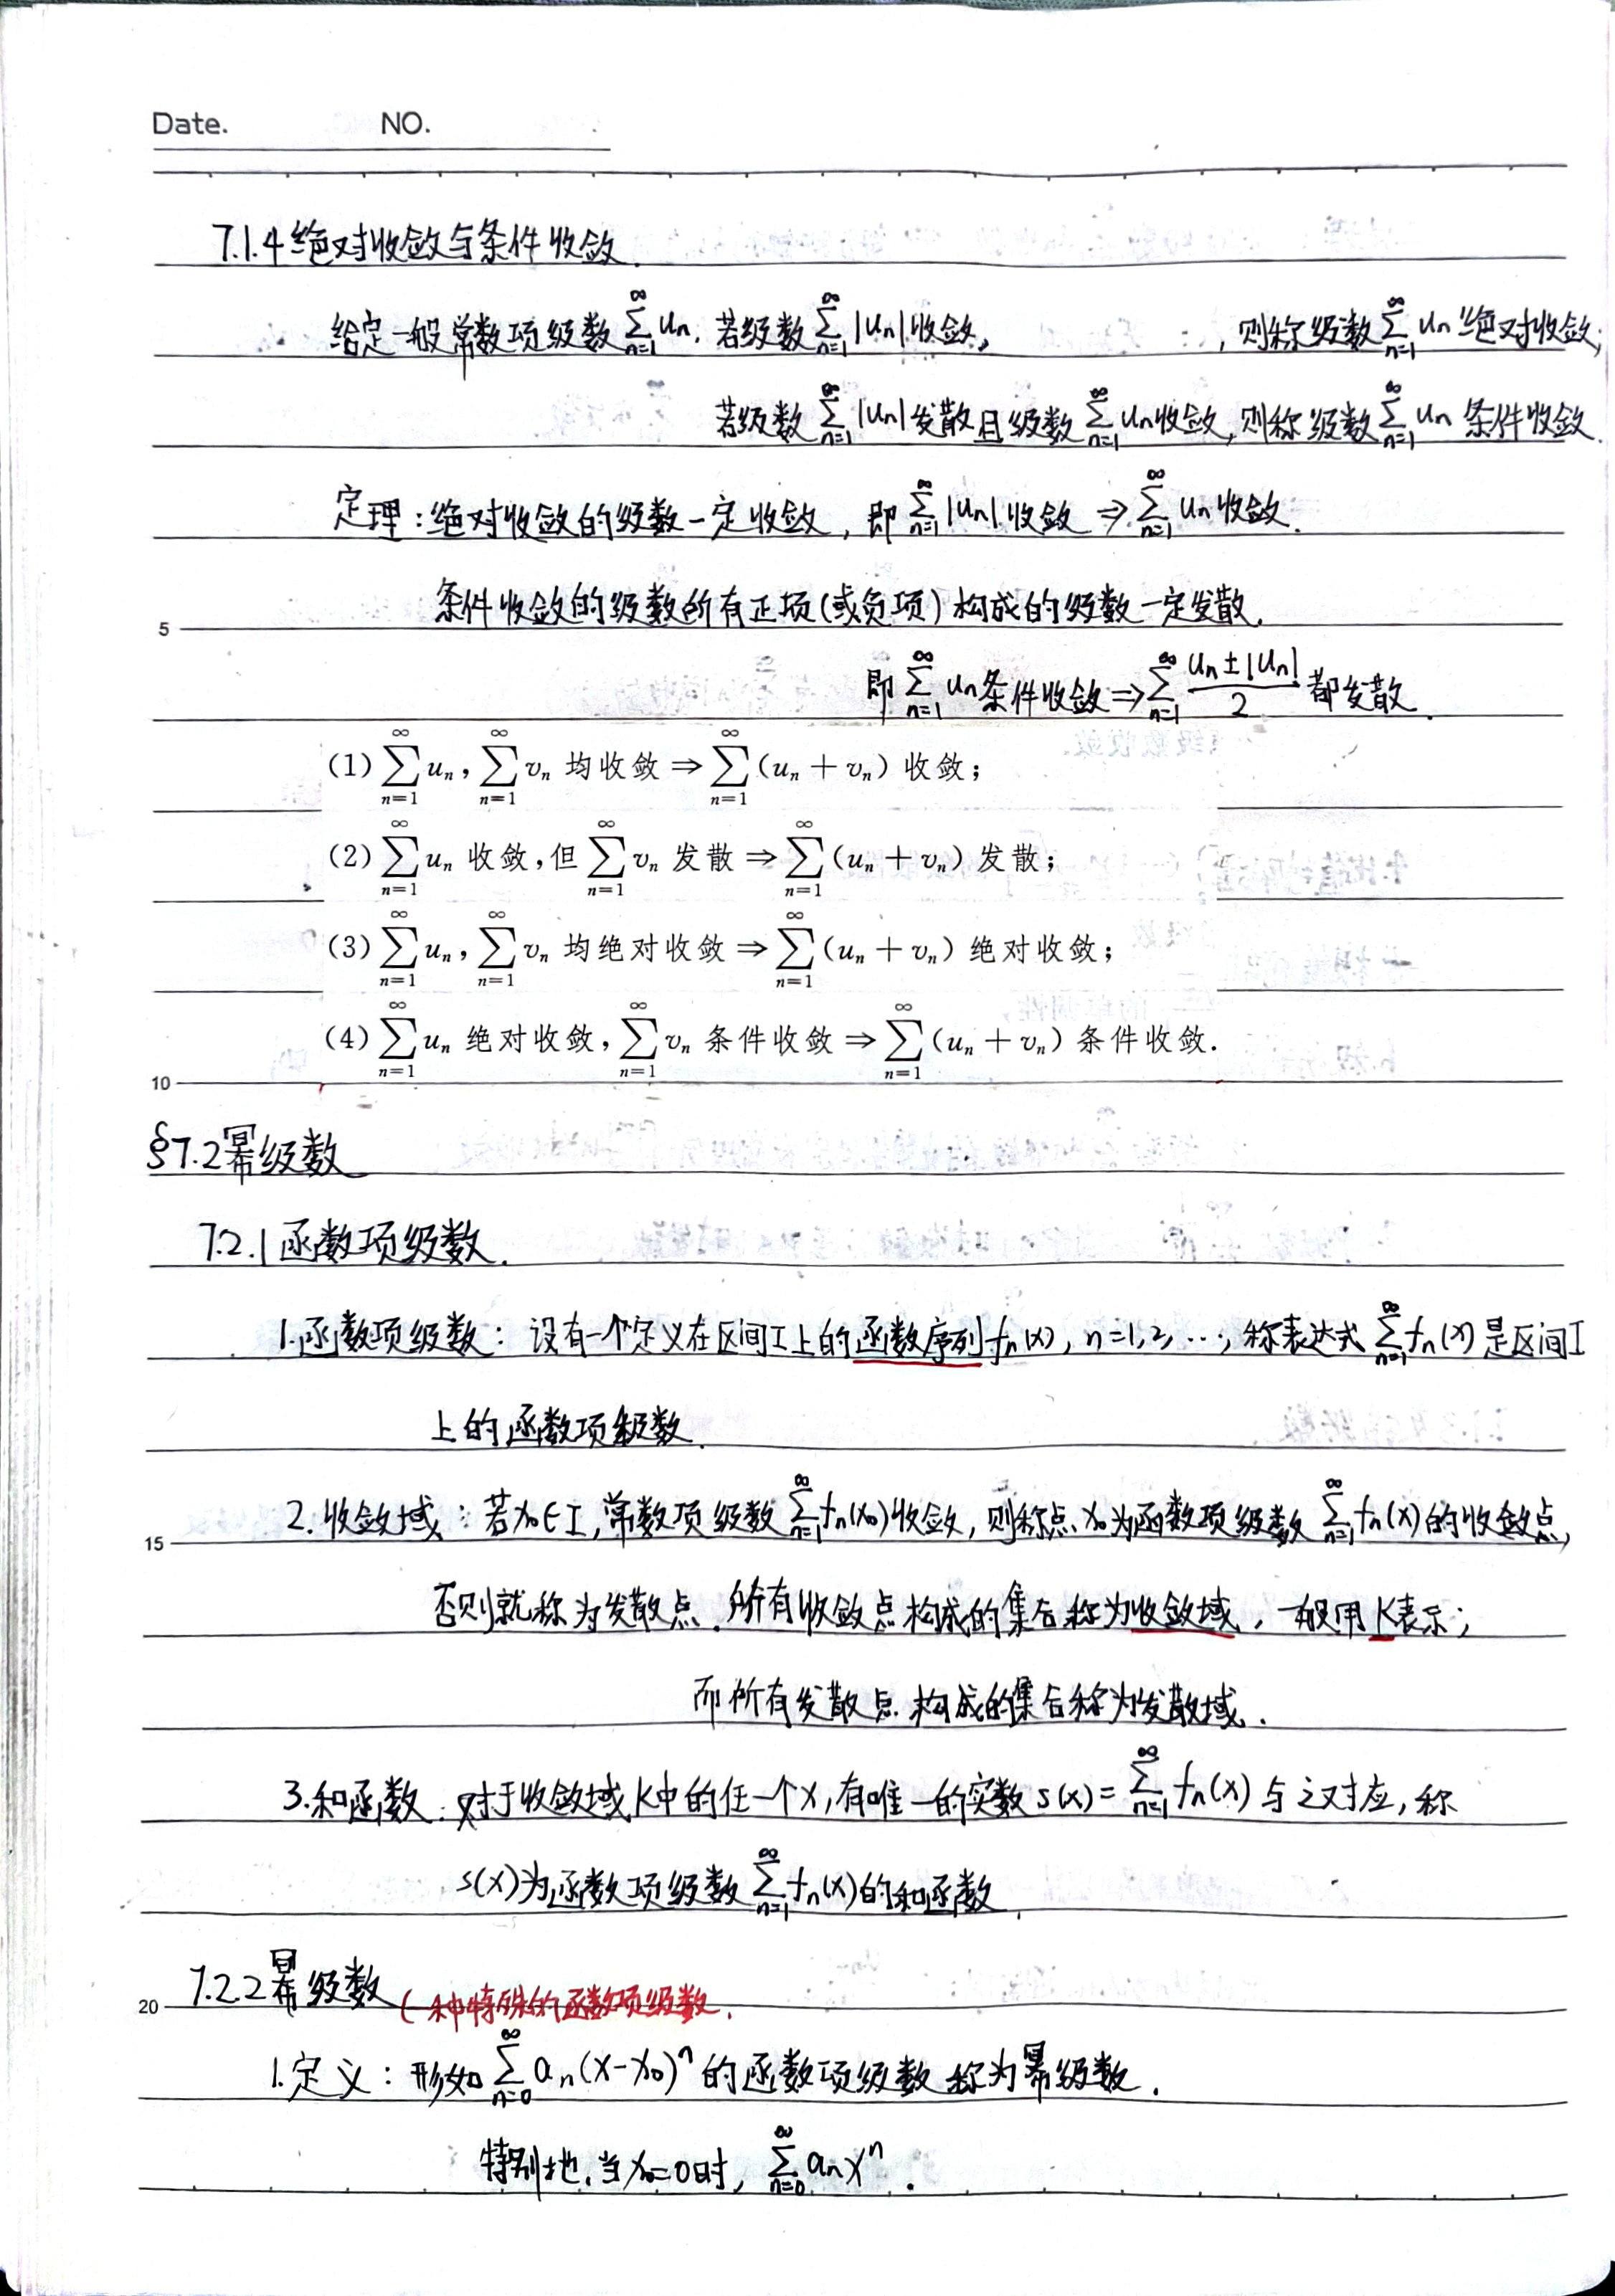 Date. NO.
7.1.4 绝对收敛与条件收敛.
给定一般常数项级数 $\sum_{n=1}^{\infty} u_n$. 若级数 $\sum_{n=1}^{\infty} |u_n|$ 收敛, ,则称级数 $\sum_{n=1}^{\infty} u_n$ 绝对收敛;
若级数 $\sum_{n=1}^{\infty} |u_n|$ 发散且级数 $\sum_{n=1}^{\infty} u_n$ 收敛,则称级数 $\sum_{n=1}^{\infty} u_n$ 条件收敛.
定理:绝对收敛的级数一定收敛, 即 $\sum_{n=1}^{\infty} |u_n|$ 收敛 ⇒ $\sum_{n=1}^{\infty} u_n$ 收敛.
5 条件收敛的级数所有正项(或负项)构成的级数一定发散.
即 $\sum_{n=1}^{\infty} u_n$ 条件收敛 ⇒ $\sum_{n=1}^{\infty} \frac{u_n \pm |u_n|}{2}$ 都发散.
(1) $\sum_{n=1}^{\infty} u_n$, $\sum_{n=1}^{\infty} v_n$ 均收敛 ⇒ $\sum_{n=1}^{\infty} (u_n + v_n)$ 收敛;
(2) $\sum_{n=1}^{\infty} u_n$ 收敛,但 $\sum_{n=1}^{\infty} v_n$ 发散 ⇒ $\sum_{n=1}^{\infty} (u_n + v_n)$ 发散;
(3) $\sum_{n=1}^{\infty} u_n$, $\sum_{n=1}^{\infty} v_n$ 均绝对收敛 ⇒ $\sum_{n=1}^{\infty} (u_n + v_n)$ 绝对收敛;
(4) $\sum_{n=1}^{\infty} u_n$ 绝对收敛, $\sum_{n=1}^{\infty} v_n$ 条件收敛 ⇒ $\sum_{n=1}^{\infty} (u_n + v_n)$ 条件收敛.
10
§7.2 幂级数
7.2.1 函数项级数.
1.函数项级数: 设有一个定义在区间I上的函数序列 $f_n(x)$, n=1,2, …, 称表达式 $\sum_{n=1}^{\infty} f_n(x)$ 是区间I
上的函数项级数.
15 2. 收敛域: 若 $x_0 \in I$,常数项级数 $\sum_{n=1}^{\infty} f_n(x_0)$ 收敛, 则称点 $x_0$ 为函数项级数 $\sum_{n=1}^{\infty} f_n(x)$ 的收敛点,
否则就称为发散点. 所有收敛点构成的集合称为收敛域, 一般用K表示;
而所有发散点构成的集合称为发散域.
3.和函数: 对于收敛域K中的任一个x,有唯一的实数 $s(x) = \sum_{n=1}^{\infty} f_n(x)$ 与之对应, 称
s(x)为函数项级数 $\sum_{n=1}^{\infty} f_n(x)$ 的和函数.
20 7.2.2 幂级数 (一种特殊的函数项级数.
1.定义: 形如 $\sum_{n=0}^{\infty} a_n (x-x_0)^n$ 的函数项级数称为幂级数.
特别地,当 $x_0=0$ 时, $\sum_{n=0}^{\infty} a_n x^n$.